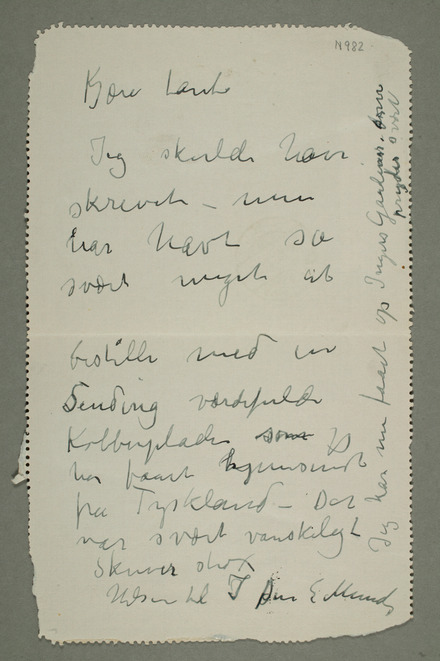 N 982
Kjære tante
Jeg skulde havt
skrevet – men
har havt så
svært meget at
bestille med en
Sending værdifulde
Kobberplader som jeg
har faaet hjemsendt
fra Tyskland – Det
var svært vanskeligt
Skriver strax
Hilsen til I Din E Munch
Jeg har nu faaet op Ingers Gardiner, som
pryder svært